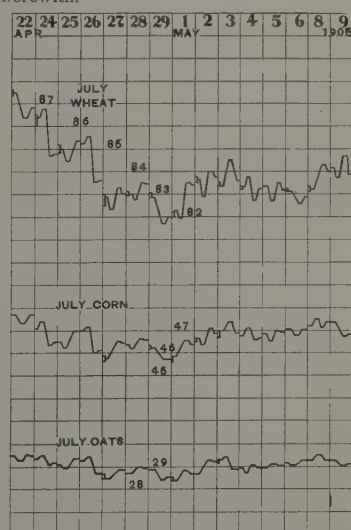 22 24 25 26 27 28 29 1 2 3 4 5 6 8 9
APR. MAY 1905
87
JULY
WHEAT
86
85
84
83
82
JULY CORN
47
46
45
JULY OATS
29
28